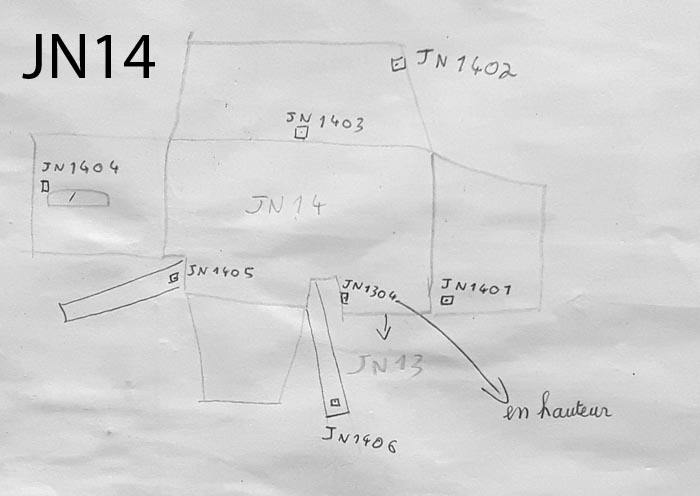 JN14
JN1402
JN1403
JN1404
JN14
JN1405
JN1304
JN1401
JN13
en hauteur
JN1406